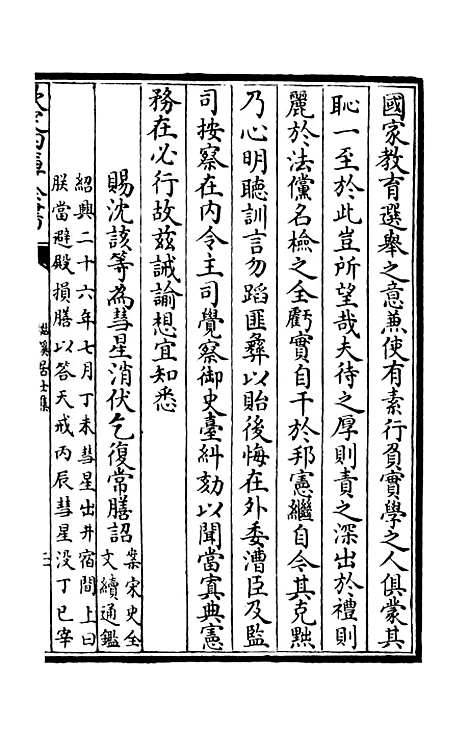 國家教育選舉之意兼使有素行負實學之人俱蒙其
恥一至於此豈所望哉夫待之厚則責之深出於禮則
麗於法儻名檢之全虧實自干於邦憲繼自今其克黜
乃心明聽訓言勿蹈匪彝以貽後悔在外委漕臣及監
司按察在内令主司覺察御史臺糾劾以聞當寘典憲
務在必行故兹誡諭想宜知悉
賜沈該等為彗星消伏乞復常膳詔
案宋史全
文續通鑑
紹興二十六年七月丁未彗星出井宿間上曰
朕當避殿損膳以答天戒丙辰彗星没丁巳宰
欽定四庫全書
居士集